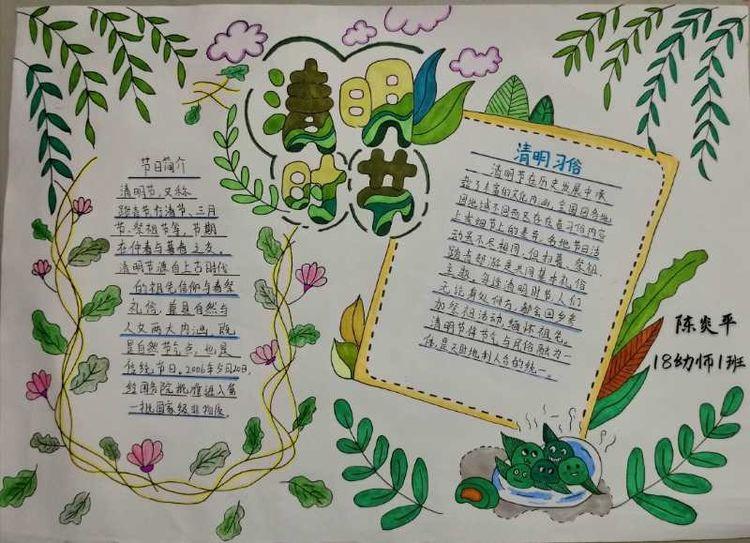 清明
时节
节日简介
清明节,又称
踏青节、行清节、三月
节、祭祖节等,节期
在仲春与暮春之交。
清明节源自上古时代
的祖先信仰与春祭
礼俗,兼具自然与
人文两大内涵,既
是自然节气点,也是
传统节日。2006年5月20日,
经国务院批准列入第
一批国家级非物质
清明习俗
清明节在历史发展中承
载了丰富的文化内涵,全国因各地
因地域不同而又存在着习俗内容
上或细节上的差异,各地节日活
动虽不尽相同,但扫墓、祭祖、
踏青郊游是共同基本礼俗
主题。每逢清明时节,人们
无论身处何方,都会回乡参
加祭祖活动,缅怀祖先。
清明节将节气与民俗融为一
体,是天时地利人合的统一。
陈炎平
18幼师1班